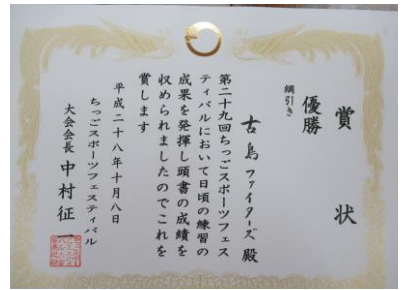 賞状
綱引き
優勝
古島ファイターズ殿
第二十九回ちっごスポーツフェス
ティバルにおいて日頃の練習の
成果を発揮し頭書の成績を
収められましたのでこれを
賞します
平成二十八年十月八日
ちっごスポーツフェスティバル
大会会長 中村征一